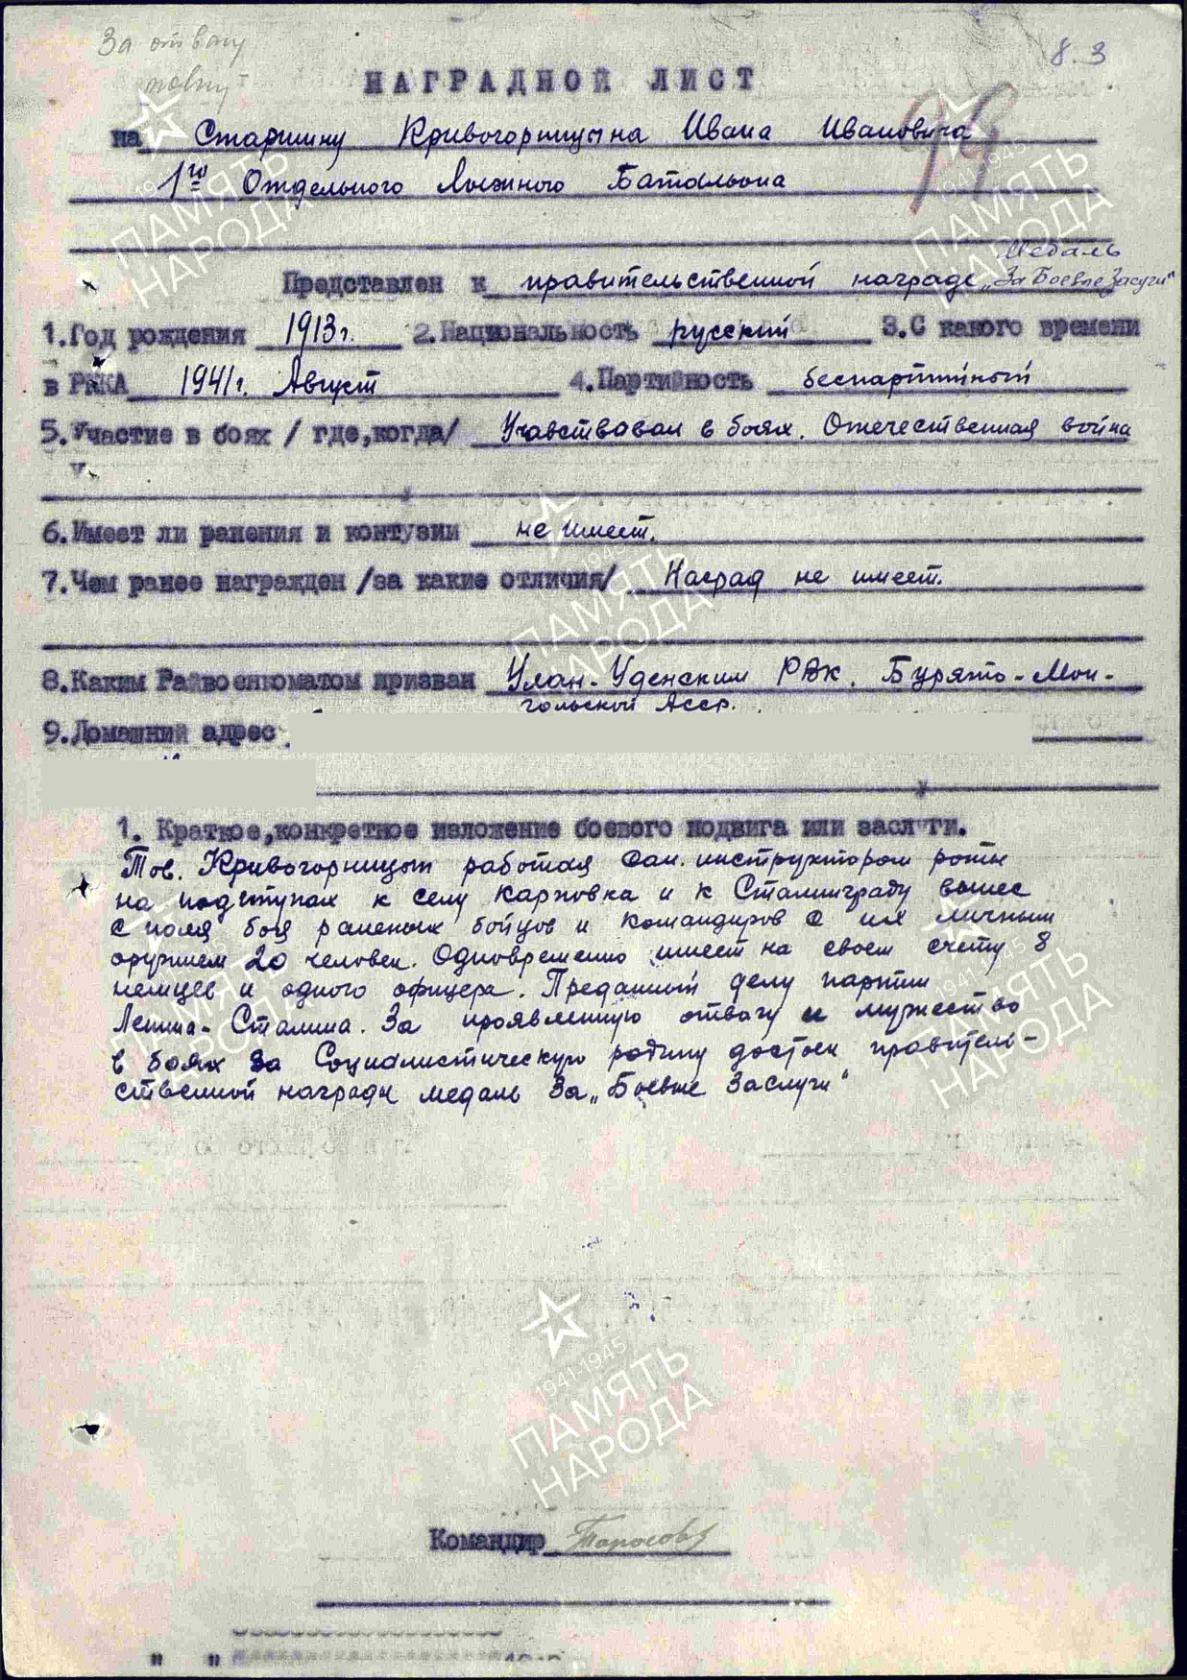 За отвагу
8. 3
НАГРАДНОЙ ЛИСТ
99
на Старшину Кривогорницына Ивана Ивановича
1го Отдельного Лыжного Батальона
Медаль
Представлен к правительственной награде „За Боевые Заслуги"
1.Год рождения 1913г. 2.Национальность русский 3.С какого времени
в РККА 1941г. Август 4.Партийность беспартийный
5.Участие в боях /где,когда/ Учавствовал в боях. Отечественная война
6.Имеет ли ранения и контузии не имеет.
7.Чем ранее награжден /за какие отличия/ Наград не имеет.
8.Каким Райвоенкоматом призван Улан-Уденским РВК. Бурято-Мон-
гольской Асср.
9.Домашний адрес
1. Краткое,конкретное изложение боевого подвига или заслуги.
Тов. Кривогорницын работая Сан. инструктором роты
на подступах к селу Карповка и к Сталинграду вынес
с поля боя раненых бойцов и командиров с их личным
оружием 20 человек. Одновременно имеет на своем счету 8
немцев и одного офицера. Преданный делу партии
Ленина-Сталина. За проявленную отвагу и мужество
в боях за Социалистическую родину достоен правитель-
ственной награды медаль За „Боевые Заслуги"
Командир Тарасов
1941-1945
ПАМЯТЬ
НАРОДА